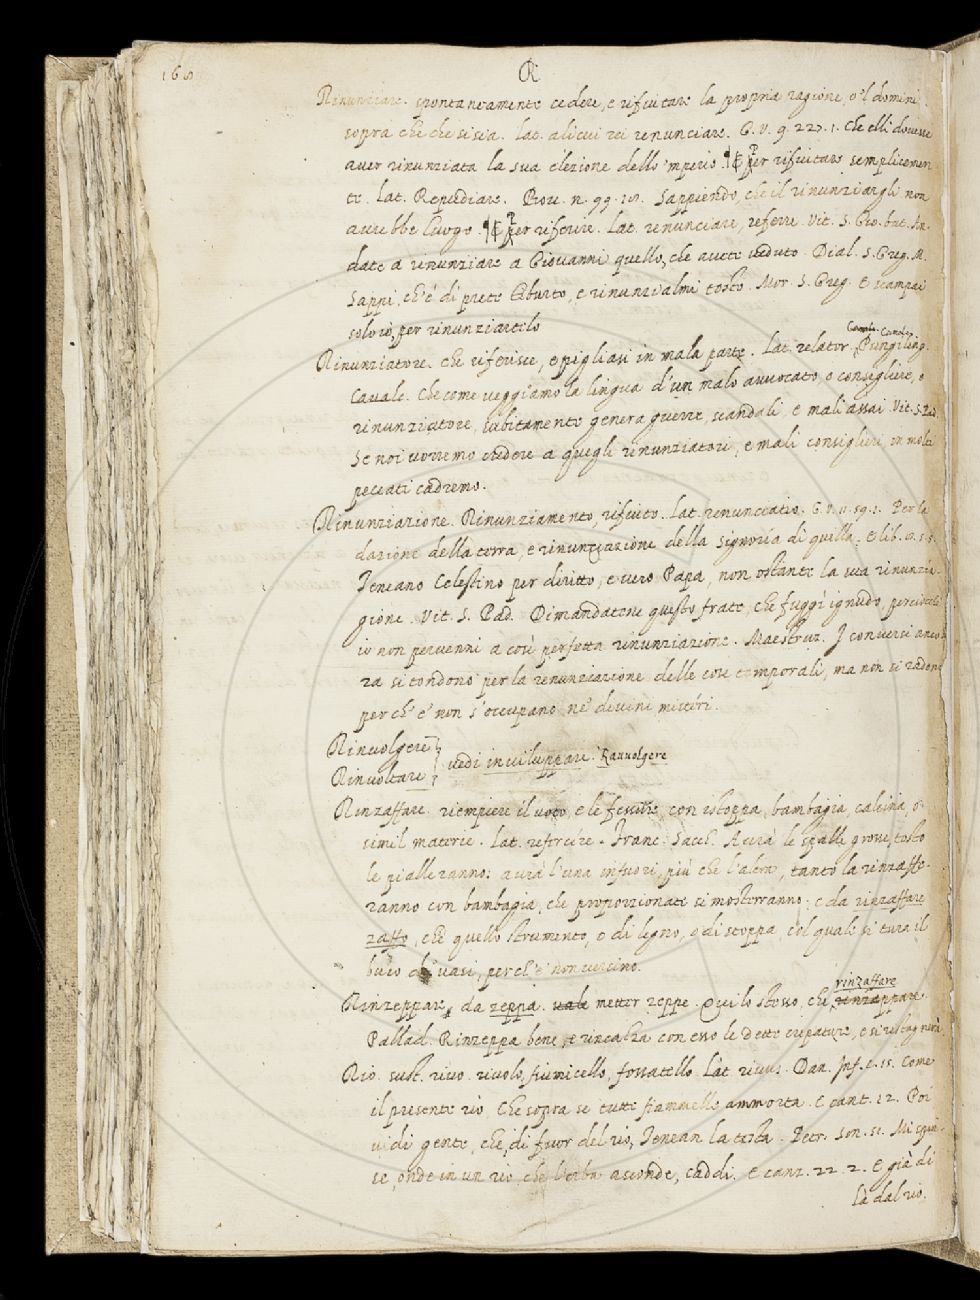 168
R
Rinunziare. spontaneamente cedere, e rifiutare la propria ragione, o'l domini
sopra che che si sia. Lat. alicui rei renunciare. G. V. 9. 227. 1. Che elli dovesse
aver rinunziata la sua elezione dello 'mperio. ¶ Per rifiutare semplicemen
te. Lat. Repudiare. Nov. n. 99. Sappiendo, che il rinunziargli non
avrebbe luogo. ¶ Per riferire. Lat. renunciare, referre. Vit. S. Gio. bat. An
date a rinunziare a Giovanni quello, che avete veduto. Dial. S. Greg. M.
Sappi, ch'è di prete Tiburto, e rinunzialmi tosto. Mor. S. Greg. E scampai
solo io, per rinunziartelo
Rinunziatore. che riferisce, e pigliasi in mala parte. Lat. relator. Pungiling.
Cavalc. Che come veggiamo la lingua d'un malo avvocato, o consigliere, o
rinunziatore, subitamente genera guerre, scandali, e mali assai. Vit. S. Pad.
Se noi vorremo credere a quegli rinunziatori, e mali consiglieri, in molti
peccati cadremo.
Rinunziazione. Rinunziamento, rifiuto. Lat. renunceatio. G. V. 11. 59. 1. Per la
dazione della terra, e rinunziazione della signoria di quella. E lib. 8. 5. 5.
Teneano Celestino per diritto, e vero Papa, non ostante la sua rinunzia
gione. Vit. S. Pad. Dimandatene questo frate, che fuggì ignudo, perciocchè
io non pervenni a così perfetta rinunziazione. Maestruz. I conversi anco
ra si tondono per la renunziazione delle cose temporali, ma non si radono
perch'e' non s'occupano ne' divini misteri.
Rinvolgere
Rinvoltare } vedi inviluppare. Ravvolgere
Rinzaffare. riempiere il voto, e le fessure con istoppa, bambagia, calcina, o
simil materie. Lat. refercire. Franc: Sacch. Avrà le spalle grosse, tosto
le pialleranno: avrà l'una infuori, più che l'altra, tanto la rinzaffe-
ranno con bambagia, che proporzionate si mosterranno: e da rinzaffare
zaffo, che quello strumento, o di legno, o di stoppa, col quale si tura il
buco di vasi, perch'e' non versino.
Rinzeppare, da zeppa. vale metter zeppe. Qui lo stesso, che rinzaffare
Pallad. Rinzeppa bene, e rincalza con esso le dette crepature, e si ristagnerà
Rio. sust. rivo. rivolo, fiumicello, fossatello. Lat. rivus. Dan. Inf. c. 15. Come
il presente rio Che sopra se tutte fiammelle ammorta. E cant. 12. Poi
vidi gente, che di fuor del rio, Tenean la testa. Petr. Son. 51. Mi spin-
se, onde in un rio, che l'erba asconde, Caddi. E canz. 22. 2. E già di
là dal rio.